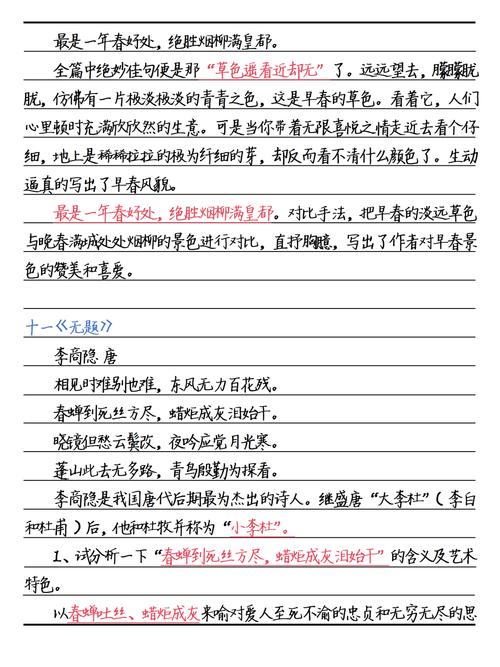 最是一年春好处，绝胜烟柳满皇都。
全篇中绝妙佳句便是那“草色遥看近却无”了。远远望去，朦朦胧
胧，仿佛有一片极淡极淡的青青之色，这是早春的草色。看着它，人们
心里顿时充满欣欣然的生意。可是当你带着无限喜悦之情走近去看个仔
细，地上是稀稀拉拉的极为纤细的芽，却反而看不清什么颜色了。生动
逼真的写出了早春风貌。
最是一年春好处，绝胜烟柳满皇都。对比手法，把早春的淡远草色
与晚春满城处处烟柳的景色进行对比，直抒胸臆，写出了作者对早春景
色的赞美和喜爱。
十一《无题》
李商隐 唐
相见时难别也难，东风无力百花残。
春蝉到死丝方尽，蜡炬成灰泪始干。
晓镜但愁云鬓改，夜吟应觉月光寒。
蓬山此去无多路，青鸟殷勤为探看。
李商隐是我国唐代后期最为杰出的诗人。继盛唐“大李杜”（李白
和杜甫）后，他和杜牧并称为“小李杜”。
1、试分析一下“春蝉到死丝方尽，蜡炬成灰泪始干”的含义及艺术
特色。
以春蝉吐丝、蜡炬成灰来喻对爱人至死不渝的忠贞和无穷无尽的思